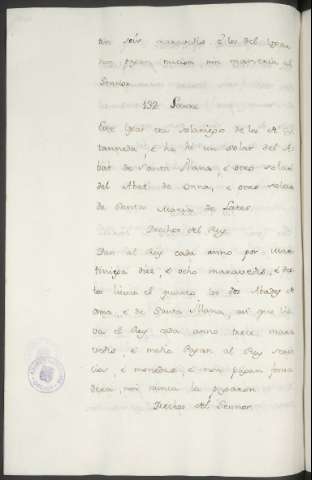 dan seis maravedis, é los del
non pagan nucion, nin mañeria al
Sennor.
192
Este logar es solariego de los
, é ha hi un solar del A-
bat de Santa Maria, é otro solar
del Abat de Onna, é otro solar
de Santa Maria de
Derechos del Rey.
Dan al Rey cada anno por Mar-
tiniega dies, é ocho maravedis, é des-
tos lieva el quarto los dos Abades de
Onna, é de Santa Maria, asi que lie-
va el Rey cada anno trece mara-
vedis, é medio. Pagan al Rey servi-
cios, é monedas, é non pagan fonsa-
dera, nin nunca la pagaron.
Derechos del Sennor.